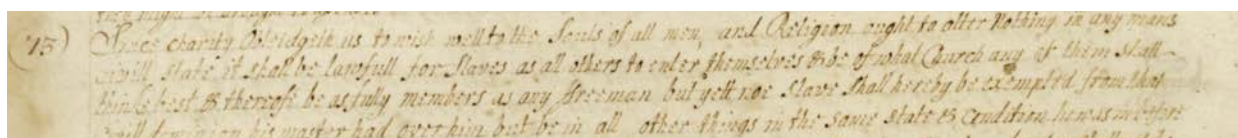 they might be brought to
(75) Since charity Obleidgeth us to wish well to the Souls of all men, and Religion ought to alter Nothing in any mans
civill state it shall be lawfull for Slaves as all others to enter themselves & be of what Church any of them shall
thinke best & thereof be as fully members as any freeman but yett noe Slave shall hereby be exempted from that
civill dominion his master had over him but be in all other things in the same state & Condition he was in before